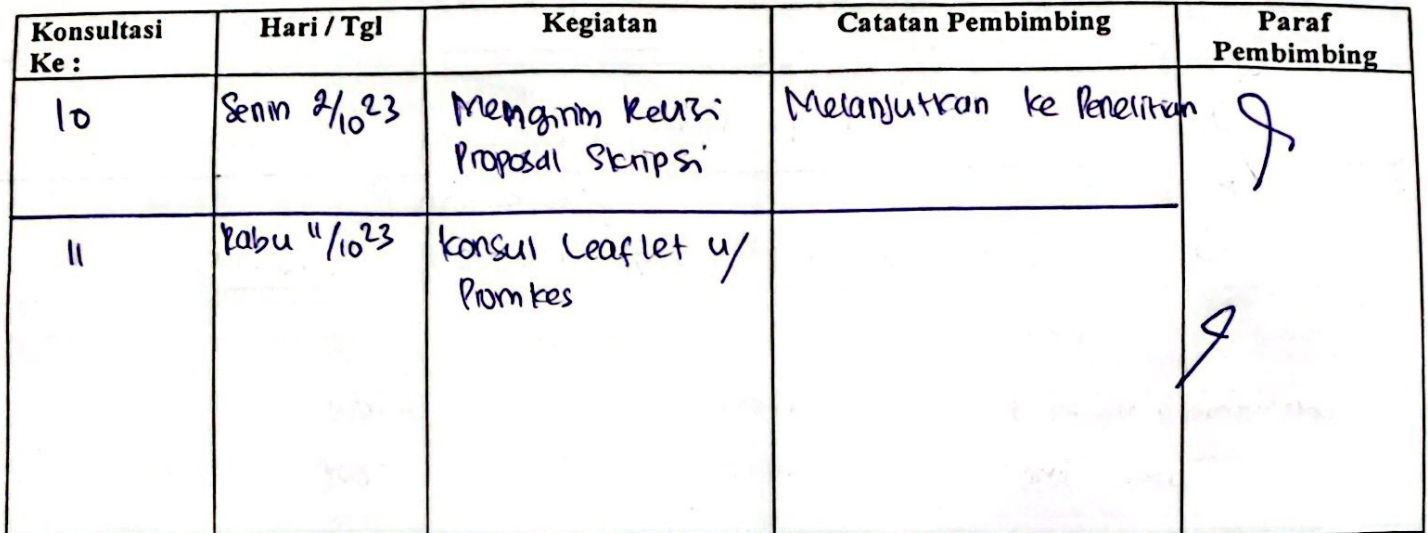 Konsultasi Ke : Hari / Tgl Kegiatan Catatan Pembimbing Paraf Pembimbing
10 Senin 2/10 23 Mengirim Revisi Melanjutkan ke Penelitian
Proposal Skripsi
11 Rabu 11/10 23 Konsul Leaflet u/
Promkes